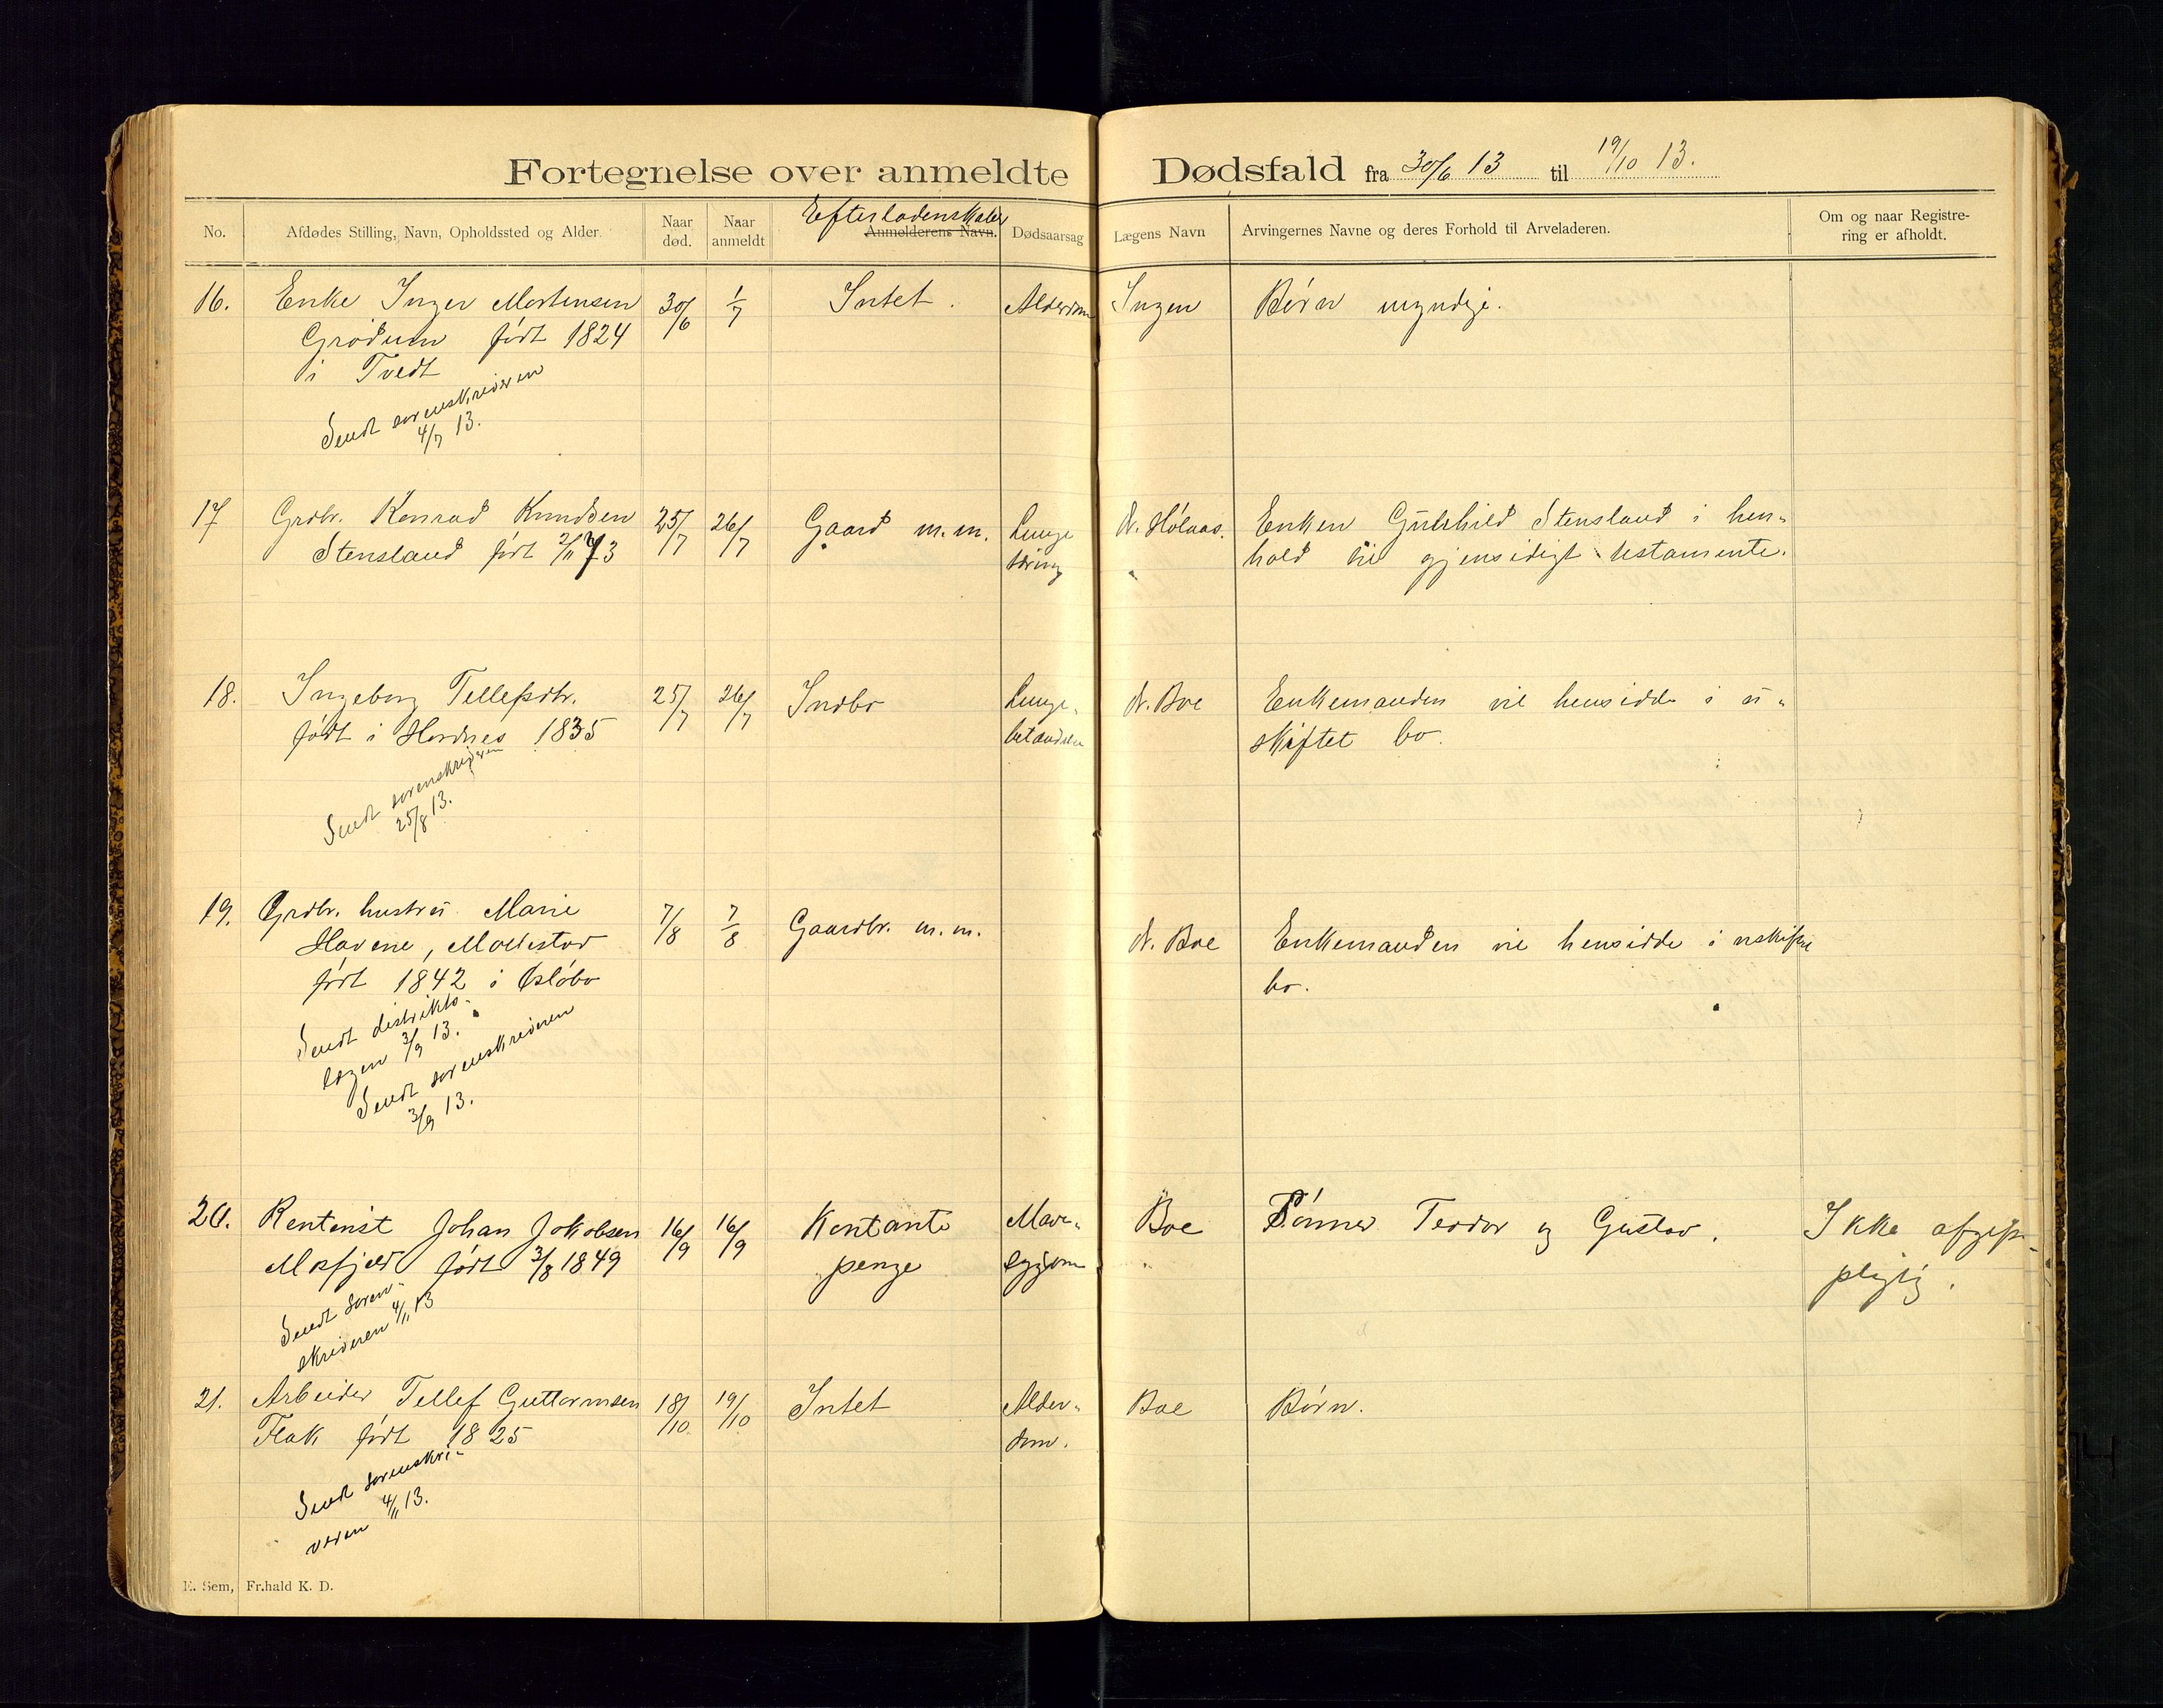 Fortegnelse over anmeldte Dødsfald fra 30/6 13 til 19/10 13.
No. Afdødes Stilling, Navn, Opholdssted og Alder. Naar død. Naar anmeldt Efterladenskaber Anmelderens Navn. Dødsaarsag Lægens Navn Arvingernes Navne og deres Forhold til Arveladeren. Om og naar Registre-
ring er afholdt.
16. Enke Inger Mortensen 30/6 1/7 Intet. Alderdom Ingen Børn myndige.
Grødum født 1824
i Tvedt
Sendt sorenskriveren
4/7 13.
17 Grdbr. Konrad Knudsen 25/7 26/7 Gaard m.m. Lunge d. Hølaas. Enken Gunhild Stensland i hen-
Stensland født 2/11 73 tæring hold til gjensidigt testamente.
18. Ingeborg Tellefsdtr. 25/7 26/7 Indbo Lunge- d. Boe Enkemanden vil hensidde i u-
født i Hordnes 1835 betændelse skiftet bo.
Sendt sorenskriveren
25/8 13.
19. Grdbr. hustru Marie 7/8 7/8 Gaardbr. m.m. d. Boe Enkemanden vil hensidde i uskiftet
Havene, født 1842 i bo.
Sendt distrikts-
lægen 3/9 13.
Sendt sorenskriveren
3/9 13.
20. Rentenist Johan Jokobsen 16/9 16/9 Kontante Mave- Boe Sønner Teodor og Gustav. Ikke afgifts-
Mosfjeld født 3/8 1849 penge sygdom pligtig.
Sendt soren-
skriveren 4/11 13
21. Arbeider Tellef Guttormsen 18/10 19/10 Intet Alder- Boe Børn.
Flak født 1825 dom.
Sendt sorenskri-
veren 4/11 13.
E. Sem, Fr.hald K. D.